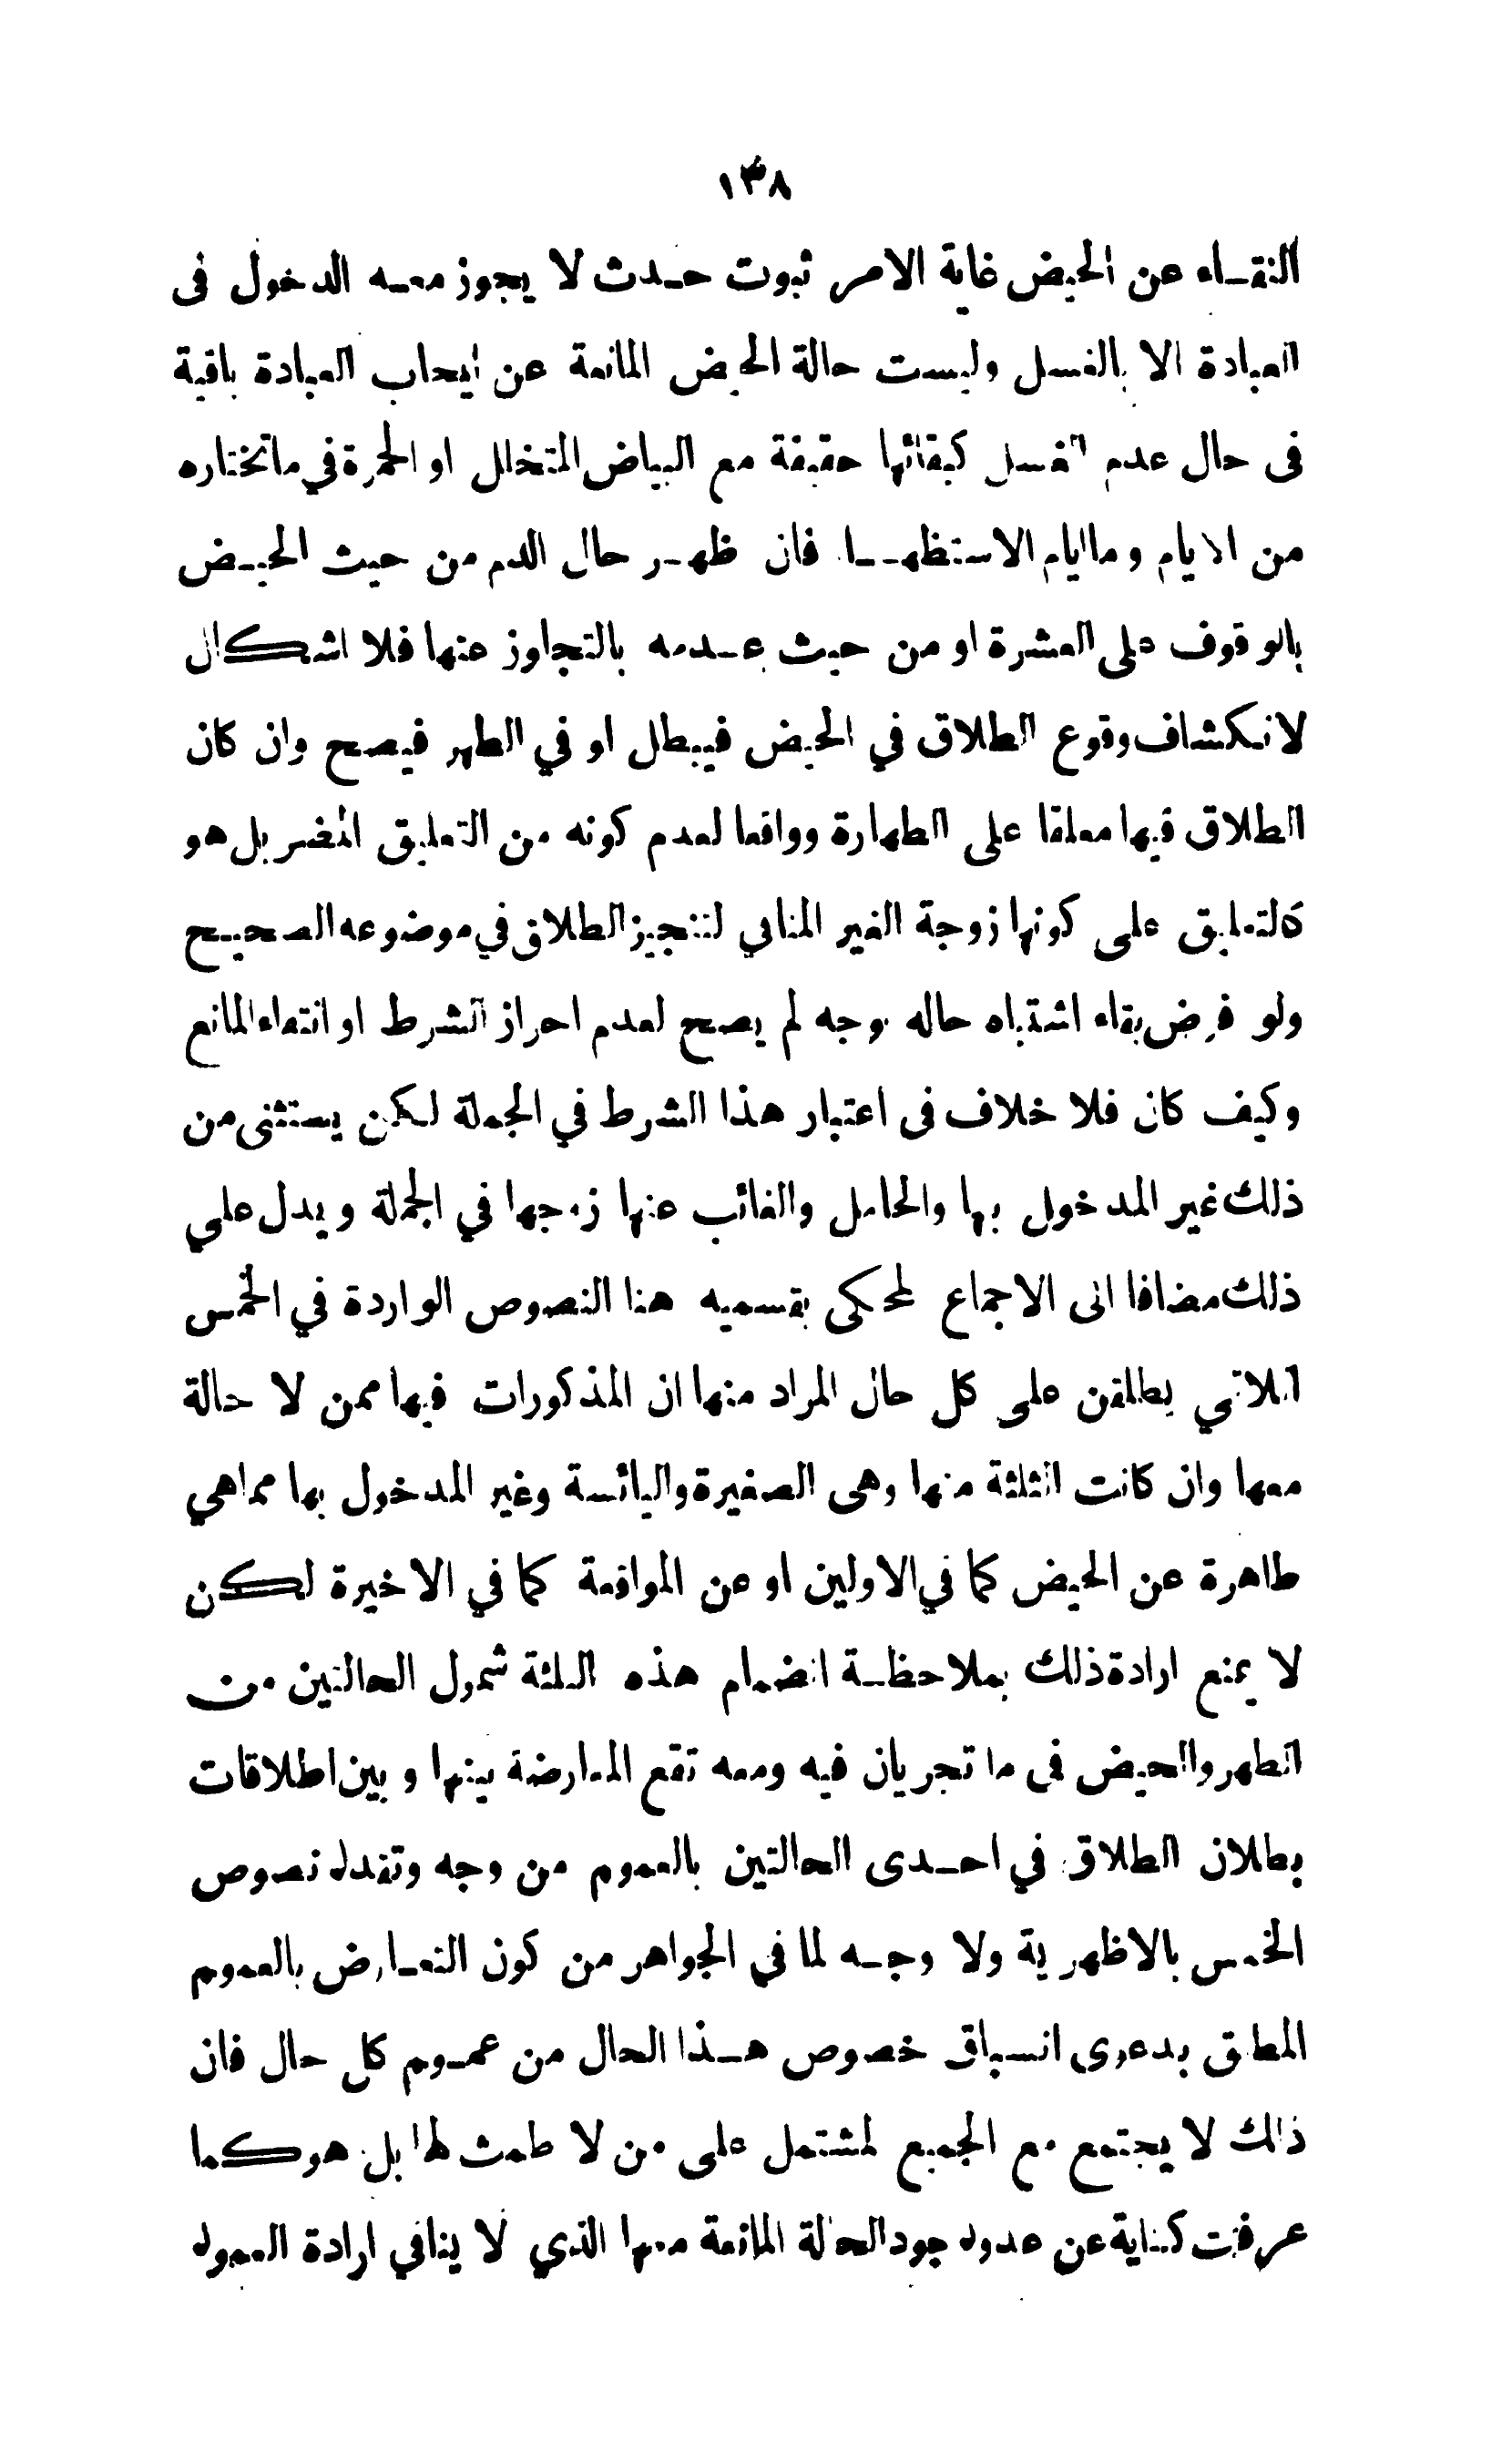 ١٣٨
النقاء عن الحيض غاية الامر ثبوت حدث لا يجوز معه الدخول فى
العبادة الا بالغسل وليست حالة الحيض المانعة عن ايجاب العبادة باقية
فى حال عدم الغسل كبقائها حقيقة مع البياض المتخلل او الحمرة في ماتختاره
من الايام وما ايام الاستظهـا فان ظهر حال الدم من حيث الحيض
بالوقوف على العشرة او من حيث عدمه بالتجاوز عنها فلا اشكال
لانكشاف وقوع الطلاق في الحيض فيبطل او في الطهر فيصح وان كان
الطلاق فيها معلقا على الطهارة وواقعا لعدم كونه من التعليق المضر بل هو
كالتعليق على كونها زوجة الغير المنافي لتنجيز الطلاق في موضوعه الصحيح
ولو فرض بقاء اشتباه حاله بوجه لم يصح لعدم احراز الشرط او انتفاء المانع
وكيف كان فلا خلاف فى اعتبار هذا الشرط في الجملة لكن يستثنى من
ذلك غير المدخول بها والحامل والغائب عنها زوجها في الجملة ويدل على
ذلك مضافا الى الاجماع لمحكى بقسميه هنا النصوص الواردة في الخمس
اللاتي يطلقن على كل حال المراد منها ان المذكورات فيها ممن لا حالة
معها وان كانت الثلثة منها وهى الصغيرة واليائسة وغير المدخول بها مماهي
طاهرة عن الحيض كما في الاولين او عن المواقعة كما في الاخيرة لكن
لا يمنع ارادة ذلك بملاحظة انضمام هذه الثلثة شمول الحالتين من
الطهر والحيض فى ما تجريان فيه ومعه تقع المعارضة بينها وبين اطلاقات
بطلان الطلاق في احدى الحالتين بالعموم من وجه وتقدم نصوص
الخمس بالاظهرية ولا وجه لما في الجواهر من كون التعارض بالعموم
المطلق بدعوى انسباق خصوص هذا الحال من عموم كل حال فان
ذلك لا يجتمع مع الجميع لمشتمل على من لا طمث لها بل هو كما
عرفت كناية عن عدم وجود الحالة المانعة معها الذي لا ينافي ارادة العموم